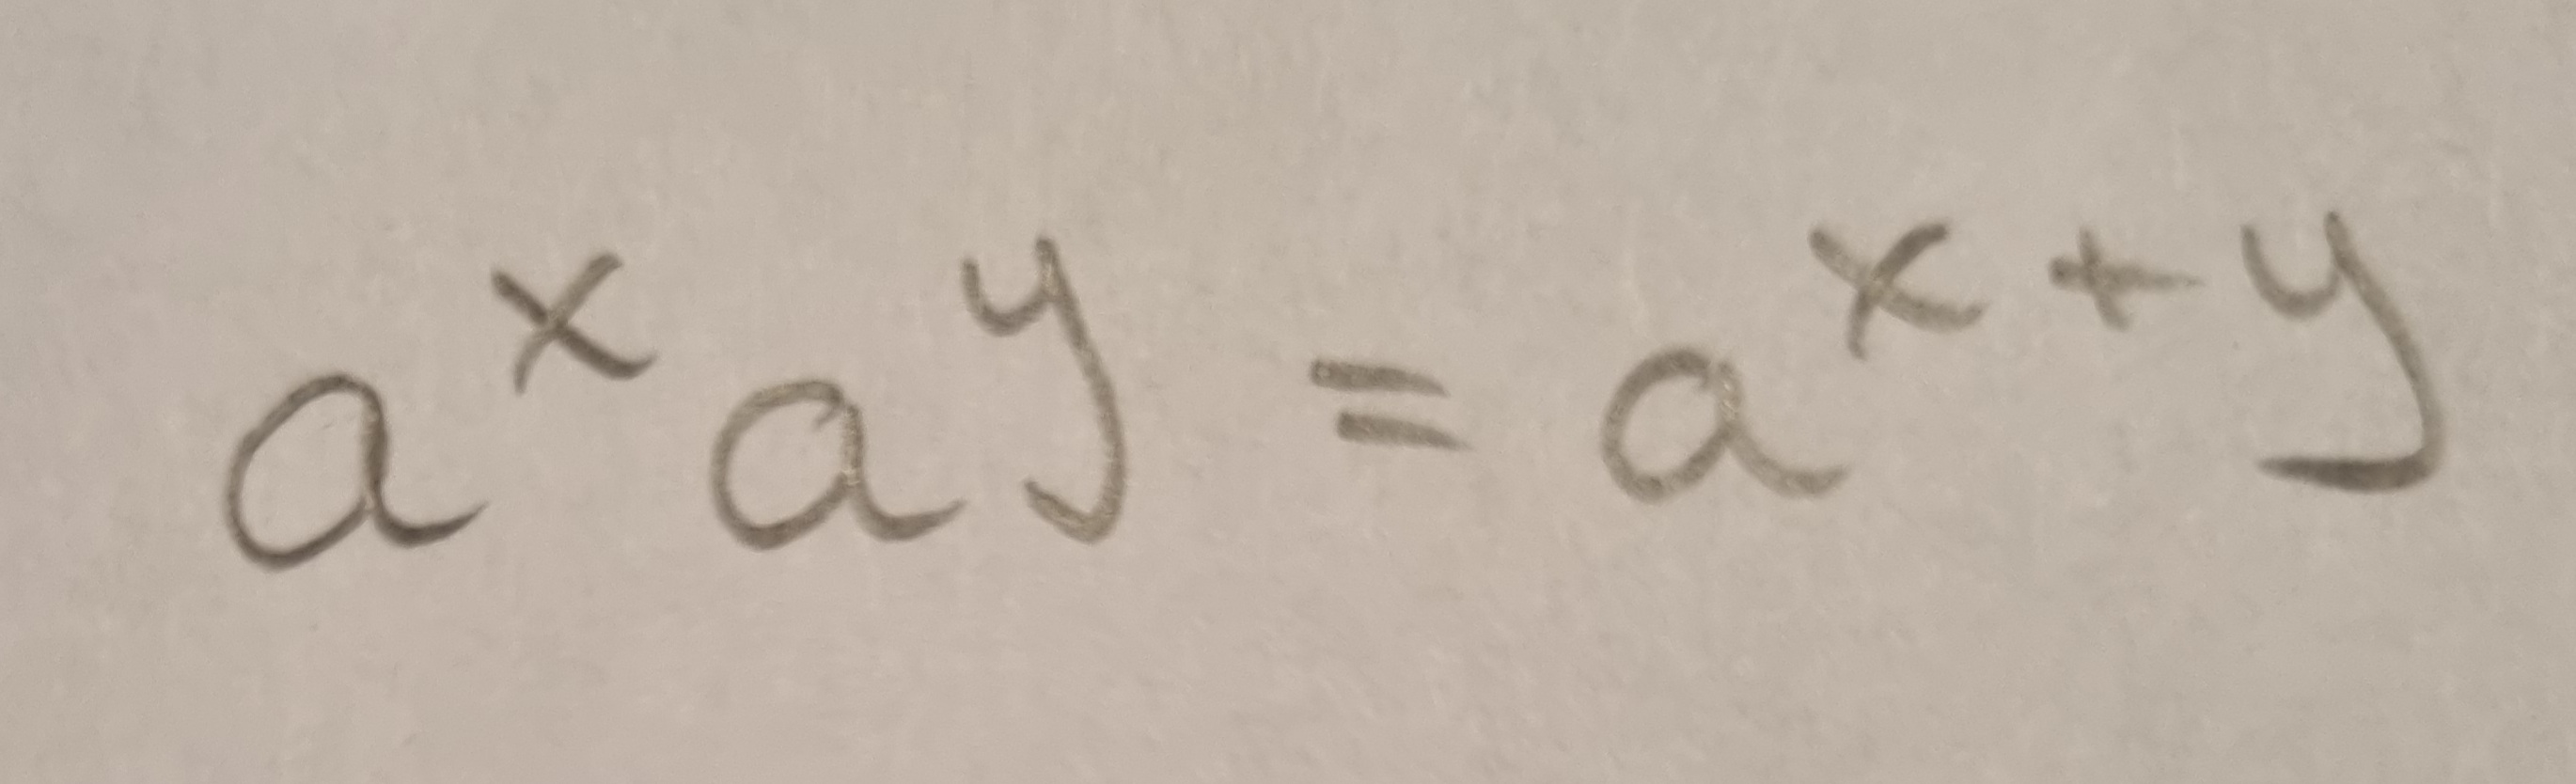 a^x a^y = a^{x+y}